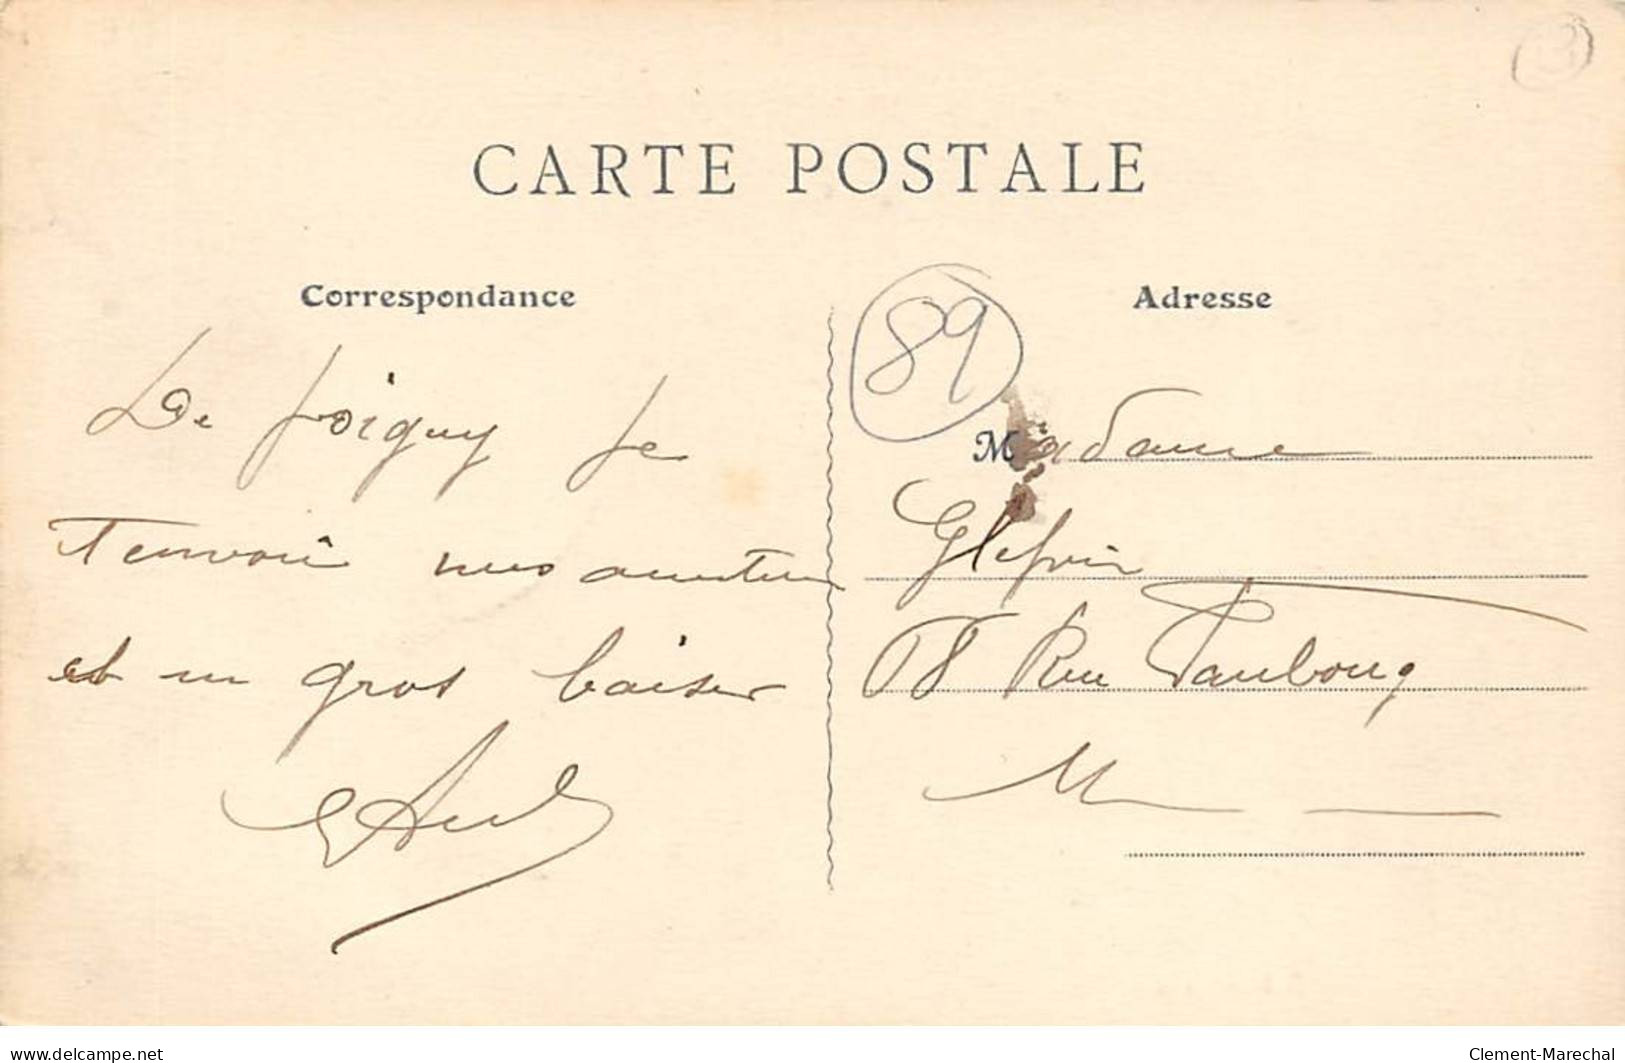 CARTE POSTALE
Correspondance
De Joigny Je
T envoie mes amities
et un gros baiser
89
Adresse
Madame
58 Rue Faubourg
M
delcampe.net
Clement-Marechal